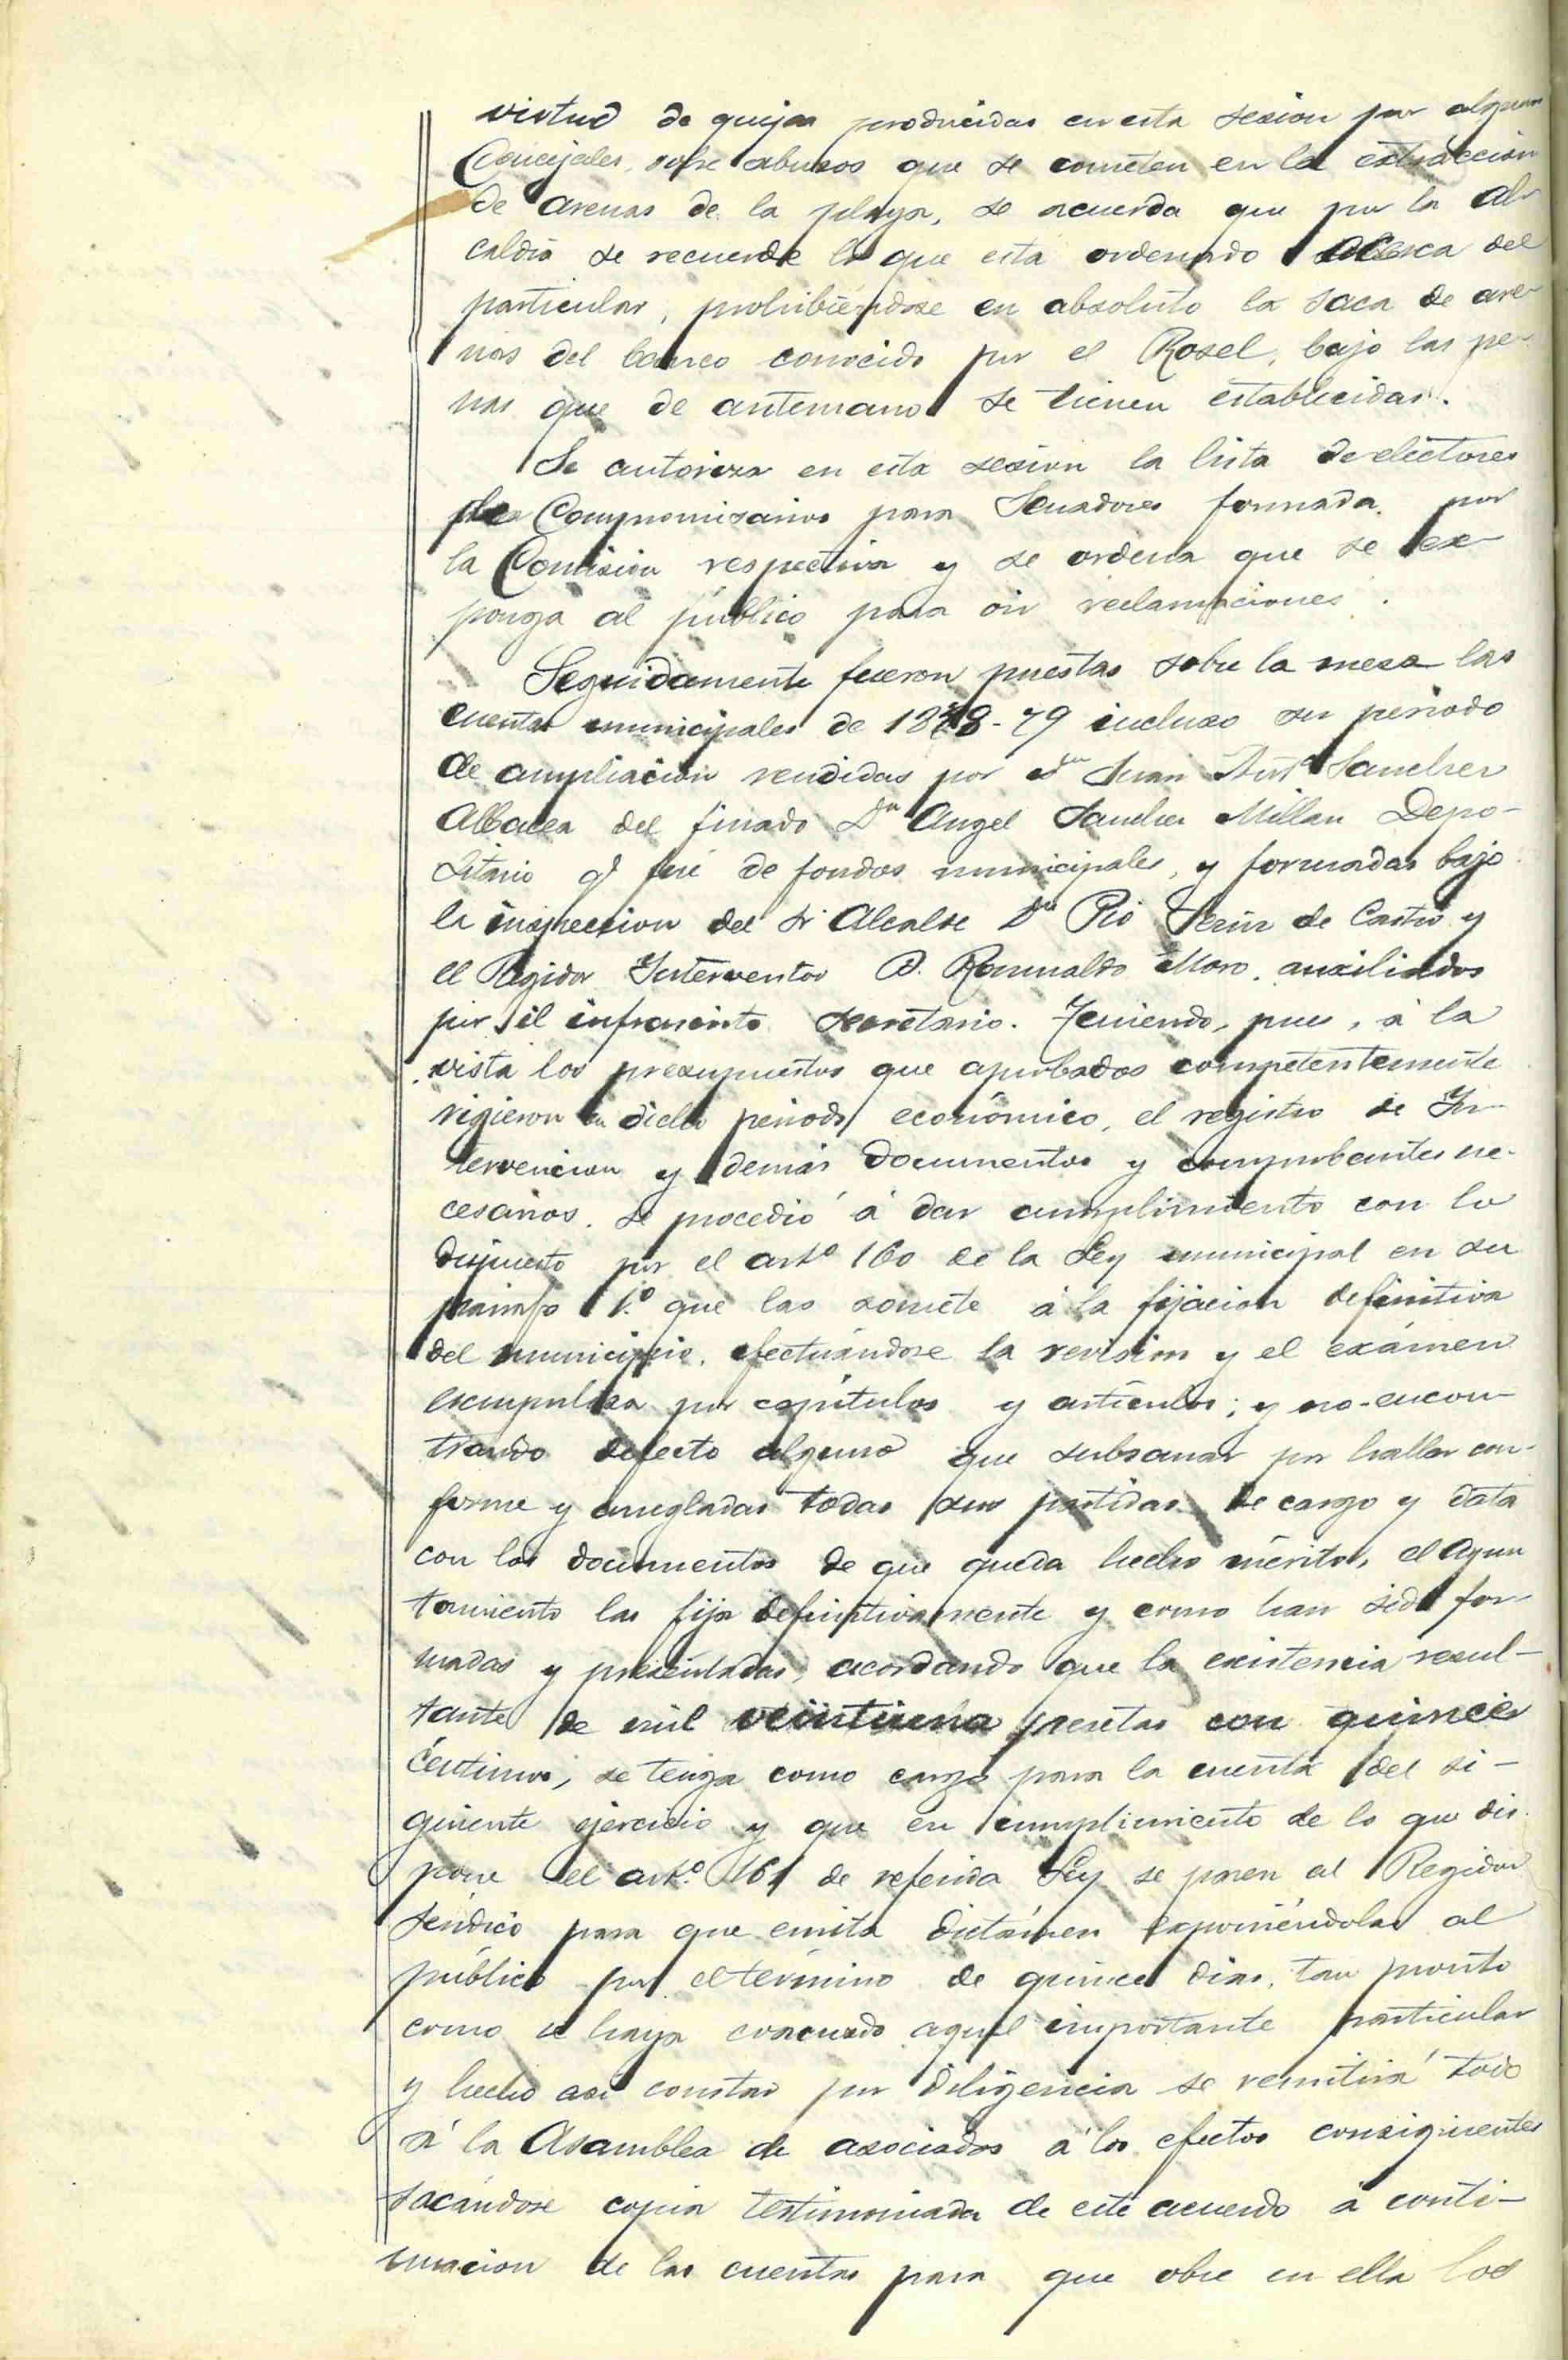 virtud de quejas producidas en esta sesion por algunos
Concejales, sobre abusos que se cometen en la extraccion
de arenas de la playa, se acuerda que por la Al-
caldia se recuerde lo que está ordenado acerca del
particular, prohibiéndose en absoluto la saca de are-
nas del banco conocido por el Rosel, bajo las pe-
nas que de antemano se tienen establecidas.
Se autoriza en esta sesion la lista de electores
Compromisarios para Senadores formada por
la Comision respectiva y se ordena que se ex-
ponga al público para oir reclamaciones.
Seguidamente fueron puestas sobre la mesa las
cuentas municipales de 1878-79 incluso su periodo
de ampliacion rendidas por Dn Juan Antº Sanchez
Albacea del finado Dn Angel Sanchez Millan Depo-
sitario q fué de fondos municipales, y formadas bajo
la inspeccion del Sr Alcalde Dn Pio de Castro y
el Regidor Interventor D. Romualdo Moro, auxiliados
por el infrascrito Secretario. Teniendo, pues, á la
vista los presupuestos que aprobados competentemente
rigieron en dicho periodo económico, el registro de In-
tervencion y demás documentos y comprobantes ne-
cesarios, se procedió á dar cumplimiento con lo
dispuesto por el artº 160 de la Ley municipal en su
párrafo 1.º que las somete á la fijacion definitiva
del municipio, efectuándose la revision y el exámen
escrupulosa por capítulos y artículos; y no encon-
trando defecto alguno que subsanar por hallar con-
forme y arregladas todas sus partidas de cargo y data
con los documentos de que queda hecho mérito, el Ayun
tamiento las fija definitivamente y como han sido for-
madas y presentadas, acordando que la existencia resul-
tante de mil veintiuna pesetas con quince
céntimos, se tenga como cargo para la cuenta del si-
guiente ejercicio y que en cumplimiento de lo que dis-
pone el artº. 161 de referida Ley se pasen al Regidor
Síndico para que emita dictámen exponiéndolas al
público por el término de quince dias, tan pronto
como se haya evacuado aquel importante particular
y hecho asi constar por diligencia se remitirá todo
á la Asamblea de asociados á los efectos consiguientes
sacándose copia testimoniada de este acuerdo á conti-
nuacion de las cuentas para que obre en ella los